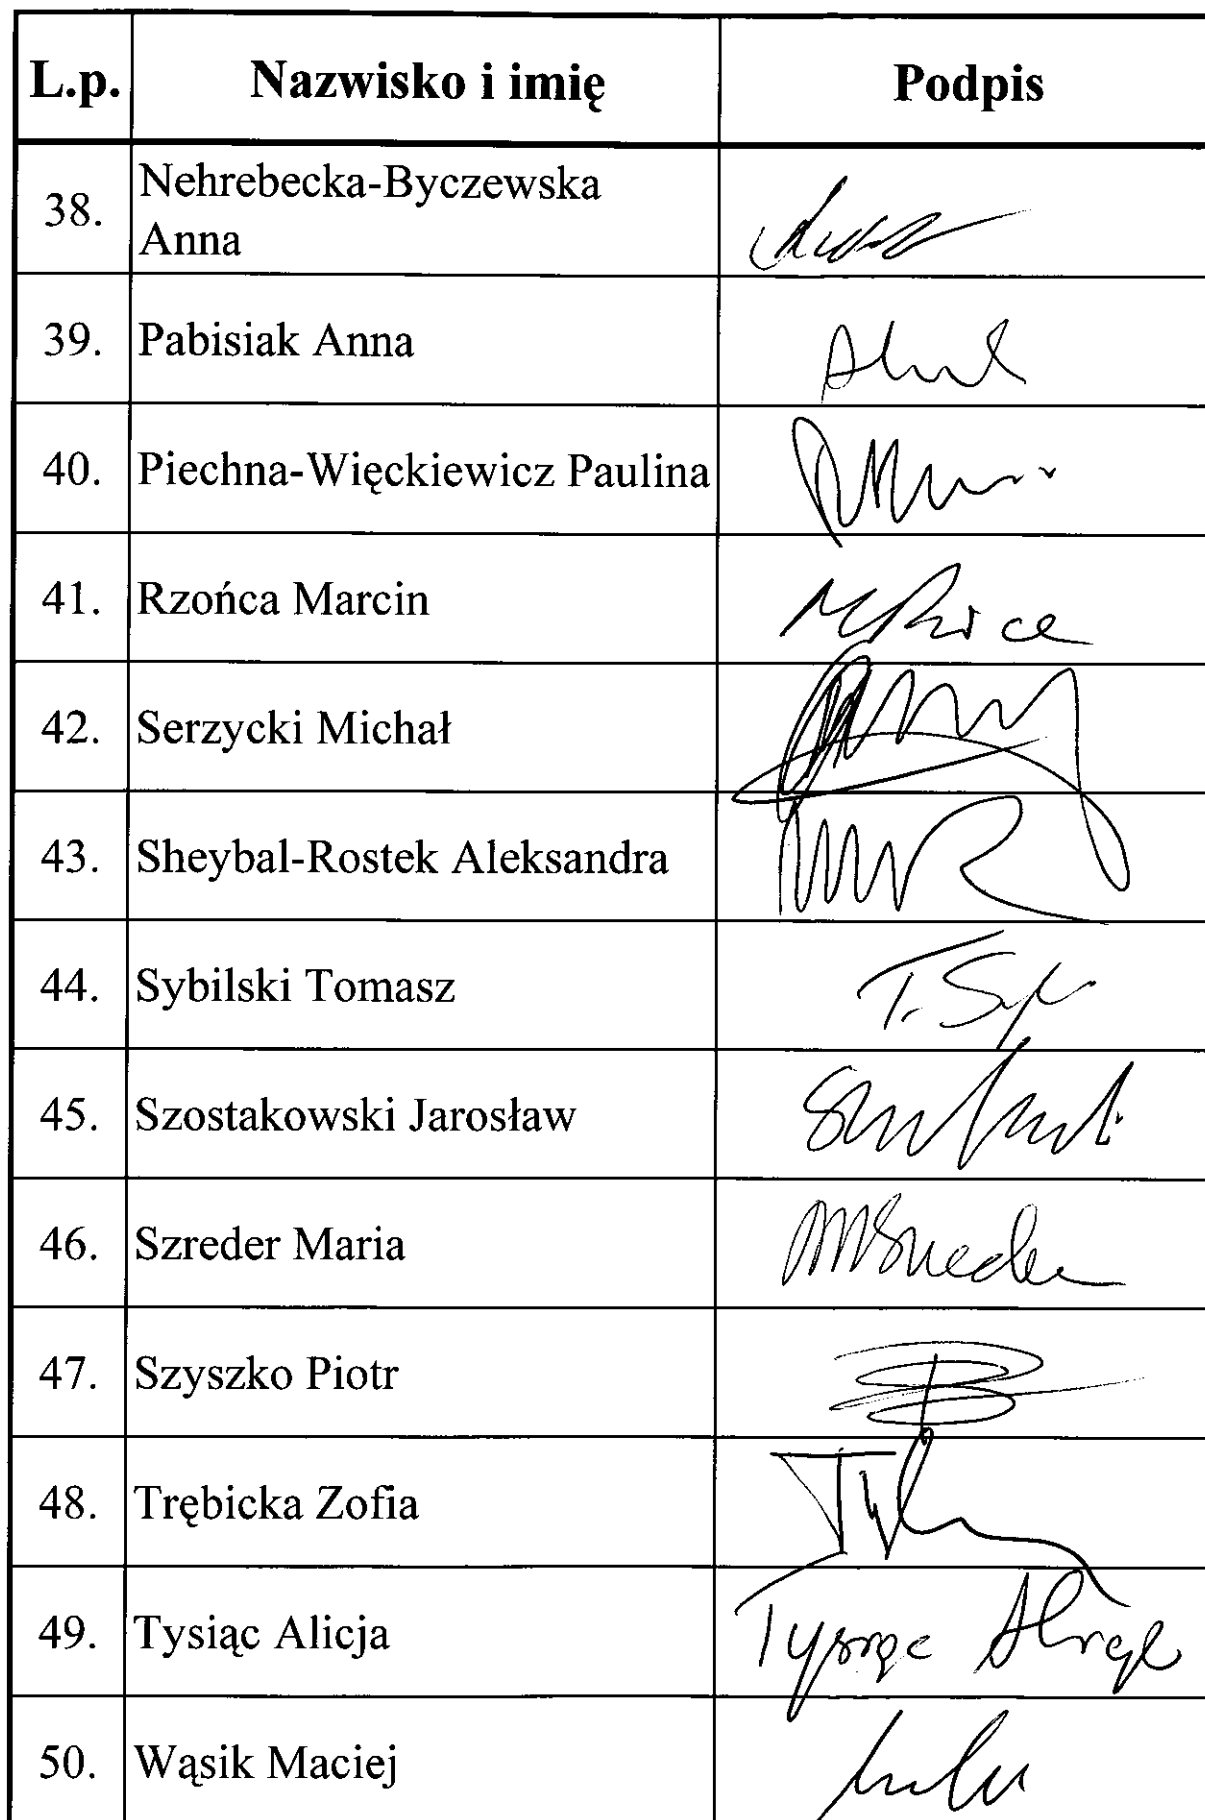 L.p. Nazwisko i imię Podpis
38. Nehrebecka-Byczewska
Anna
39. Pabisiak Anna
40. Piechna-Więckiewicz Paulina
41. Rzońca Marcin
42. Serzycki Michał
43. Sheybal-Rostek Aleksandra
44. Sybilski Tomasz T. Sy
45. Szostakowski Jarosław
46. Szreder Maria
47. Szyszko Piotr
48. Trębicka Zofia
49. Tysiąc Alicja Tysiąc Alicja
50. Wąsik Maciej